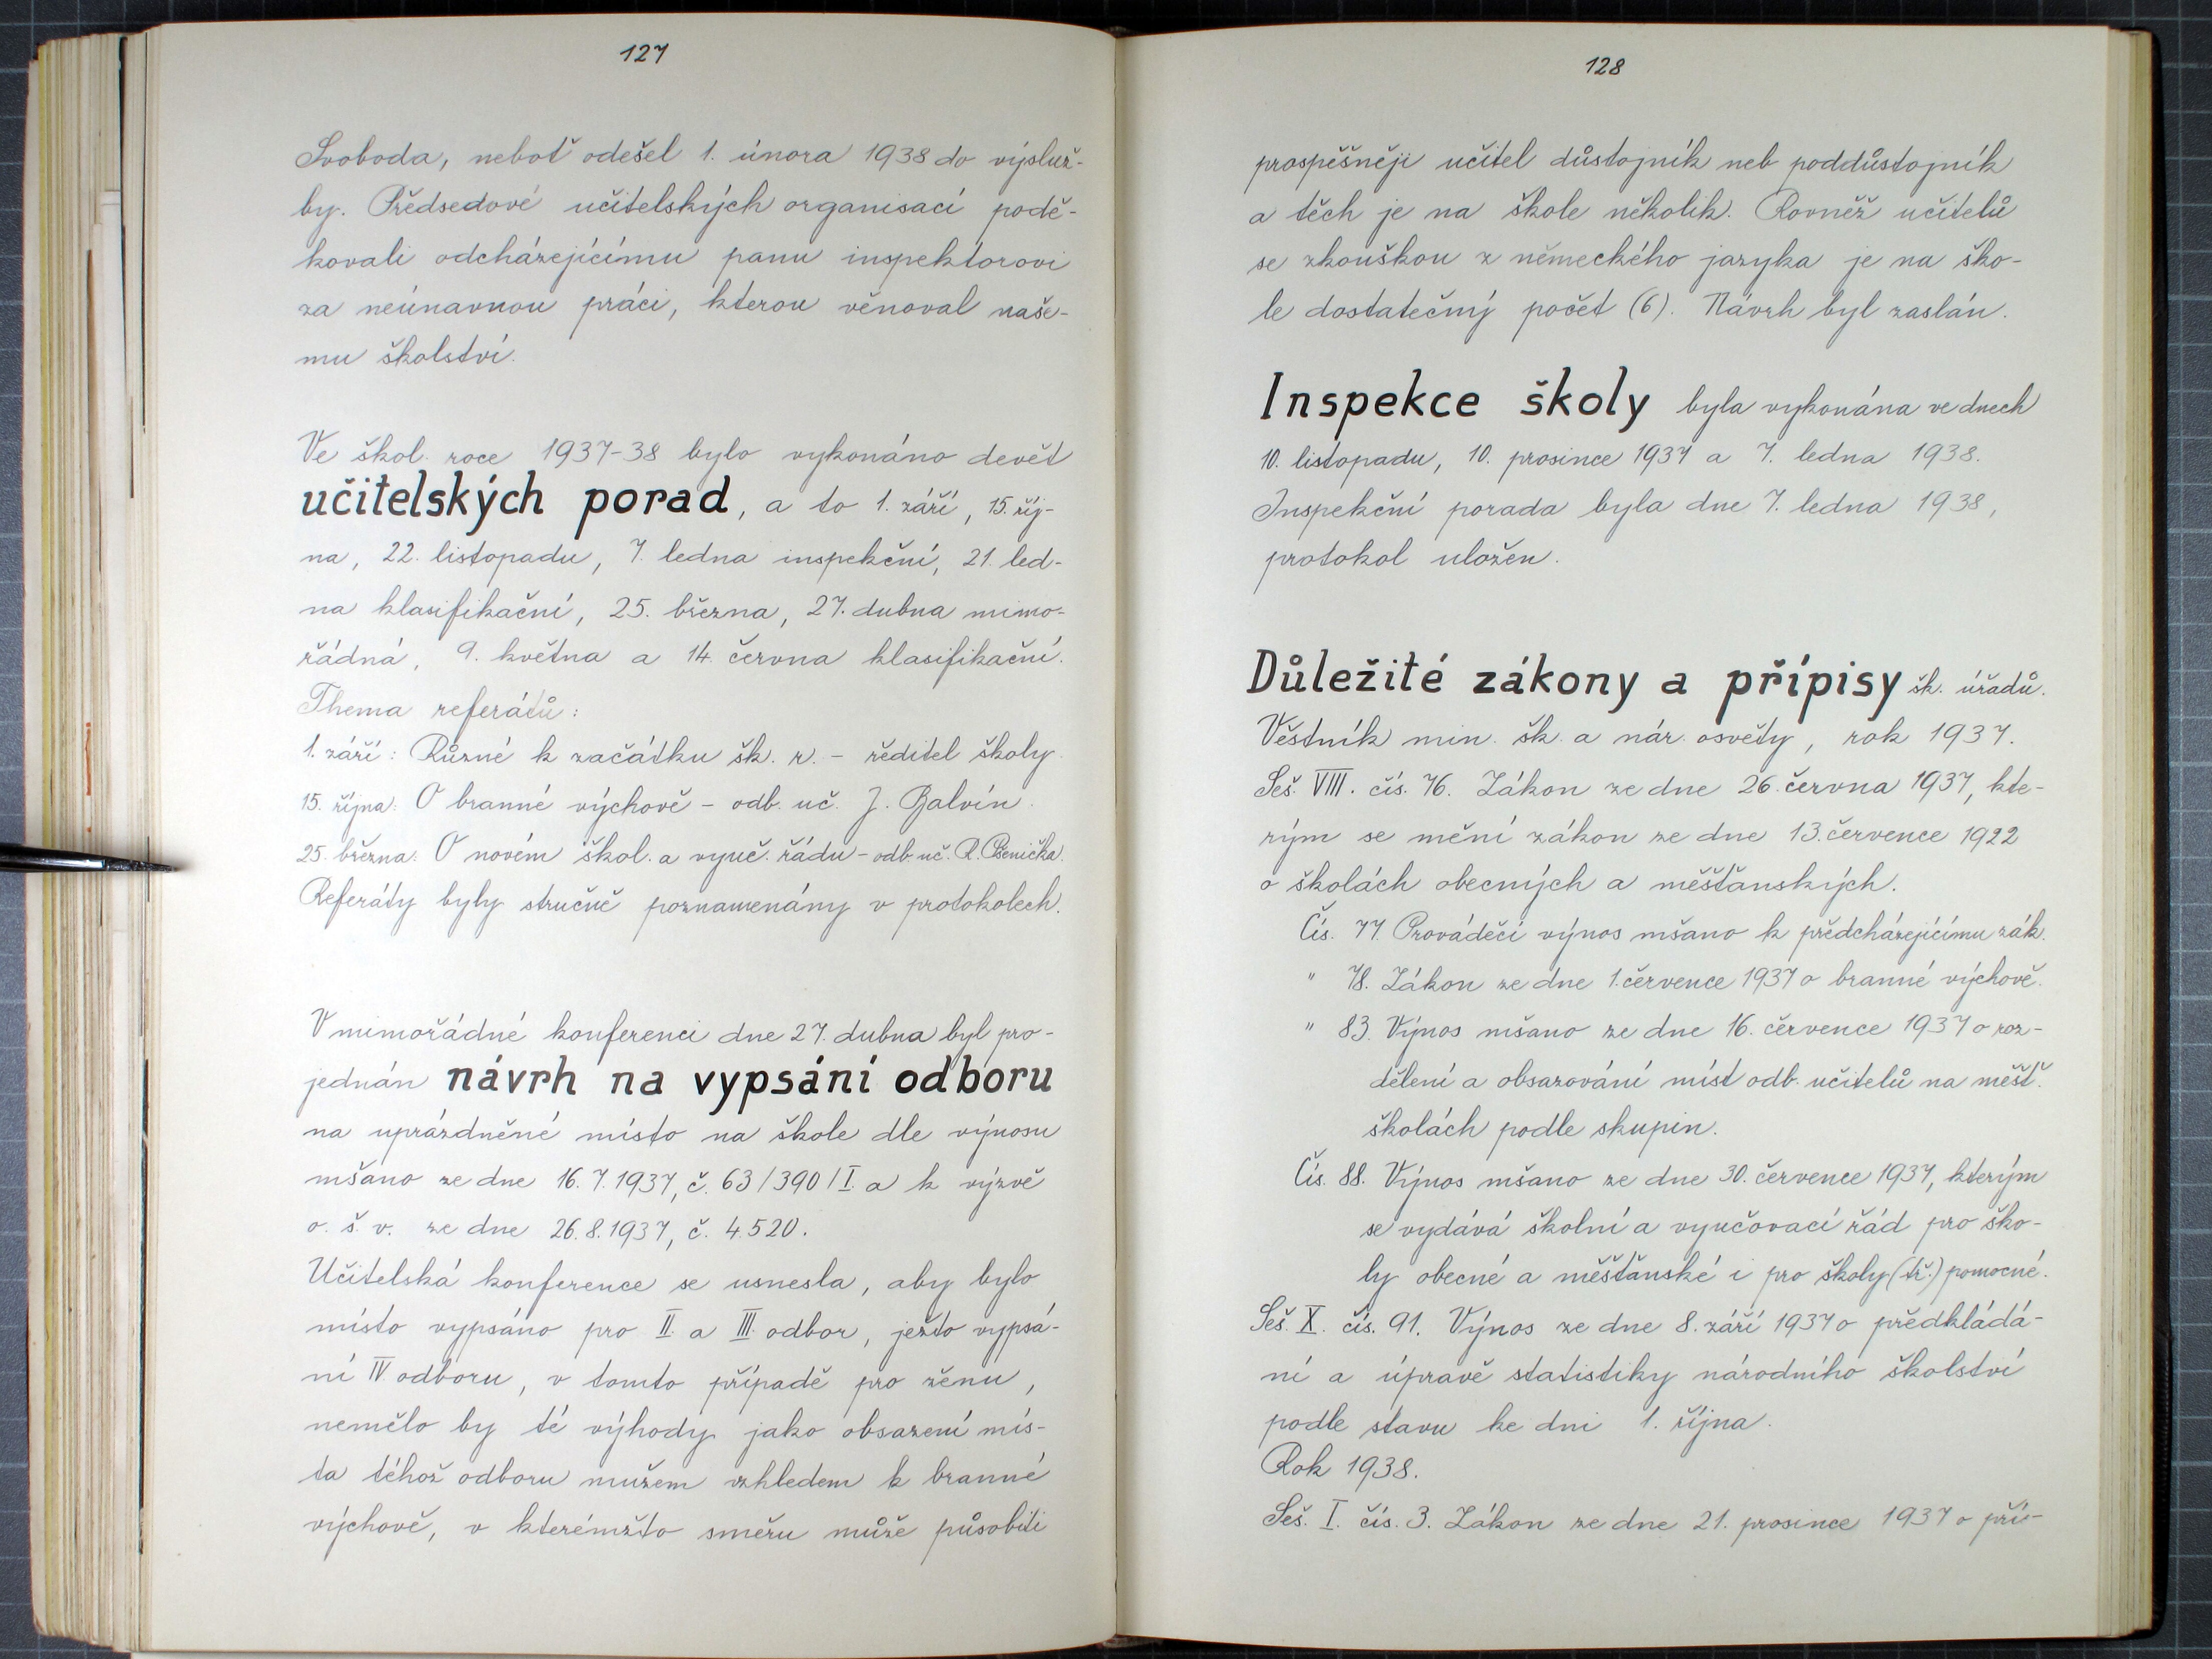 127
Svoboda, neboť odešel 1. února 1938 do výsluž-
by. Předsedové učitelských organisací podě-
kovali odcházejícímu panu inspektorovi
za neúnavnou práci, kterou věnoval naše-
mu školství.
Ve škol. roce 1937-38 bylo vykonáno devět
učitelských porad, a to 1. září, 15. říj-
na, 22. listopadu, 7. ledna inspekční, 21. led-
na klasifikační, 25. března, 27. dubna mimo-
řádná, 9. května a 14. června klasifikační.
Thema referátů:
1. září: Různé k začátku šk. r. - ředitel školy.
15. října: O branné výchově - odb. uč. J. Balvín.
25. března: O novém škol. a vyuč. řádu - odb. uč. R. Pšenička.
Referáty byly stručně poznamenány v protokolech.
V mimořádné konferenci dne 27. dubna byl pro-
jednán návrh na vypsání odboru
na uprázdněné místo na škole dle výnosu
mšano ze dne 16. 7. 1937, č. 63/390/I. a k výzvě
o. š. v. ze dne 26. 8. 1937, č. 4.520.
Učitelská konference se usnesla, aby bylo
místo vypsáno pro II. a III. odbor, ježto vypsá-
ní IV odboru, v tomto případě pro ženu,
nemělo by té výhody jako obsazení mís-
ta téhož odboru mužem vzhledem k branné
výchově, v kterémžto směru může působiti
128
prospěšněji učitel důstojník neb poddůstojník
a těch je na škole několik. Rovněž učitelů
se zkouškou z německého jazyka je na ško-
le dostatečný počet (6). Návrh byl zaslán.
Inspekce školy byla vykonána ve dnech
10. listopadu, 10. prosince 1937 a 7. ledna 1938.
Inspekční porada byla dne 7. ledna 1938,
protokol uložen.
Důležité zákony a přípisy šk. úřadů.
Věstník min. šk. a nár. osvěty, rok 1937.
Seš. VIII. čís. 76. Zákon ze dne 26. června 1937, kte-
rým se mění zákon ze dne 13. července 1922
o školách obecných a měšťanských.
Čís. 77. Prováděcí výnos mšano k předcházejícímu zák.
" 78. Zákon ze dne 1. července 1937 o branné výchově.
" 83. Výnos mšano ze dne 16. července 1937 o roz-
dělení a obsazování míst odb. učitelů na měšť.
školách podle skupin.
Čís. 88. Výnos mšano ze dne 30. července 1937, kterým
se vydává školní a vyučovací řád pro ško-
ly obecné a měšťanské i pro školy (tř.) pomocné.
Seš. X. čís. 91. Výnos ze dne 8. září 1937 o předkládá-
ní a úpravě statistiky národního školství
podle stavu ke dni 1. října.
Rok 1938.
Seš. I. čís. 3. Zákon ze dne 21. prosince 1937 o pří-